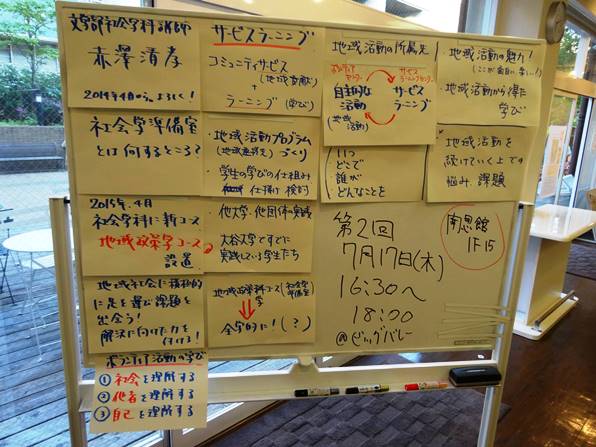 文学部社会学科講師
赤澤清孝
2014年4月から。よろしく！
サービスラーニング
コミュニティサービス
(地域貢献)
+
ラーニング(学び)
地域活動の所属先
ボランティア
センター
サービス
ラーニングセンター
自主的な
活動
(地域活動)
サービス
ラーニング
地域活動の魅力！
(ここが面白い、楽しい！)
・地域活動から得た
学び
社会学準備室
とは何するところ？
・地域活動プログラム
(地域連携室)づくり
・学生の学びの仕組み
仕掛け検討
いつ
どこで
誰が
どんなことを
地域活動を
続けていく上での
悩み、課題
2015年.4月
社会学科に新コース
地域政策学コース
設置
他大学・他団体の実践
大谷大学ですでに
実践している学生たち
第2回
7月17日(木)
16:30〜
18:00
@ビッグバレー
南恩館
1F 15
地域社会に積極的
に足を運び課題を
出会う！
解決に向けた力を
付ける！
地域政策学科コース
全学的に！(？)
ボランティア活動の学び
① 社会を理解する
② 他者を理解する
③ 自己を理解する